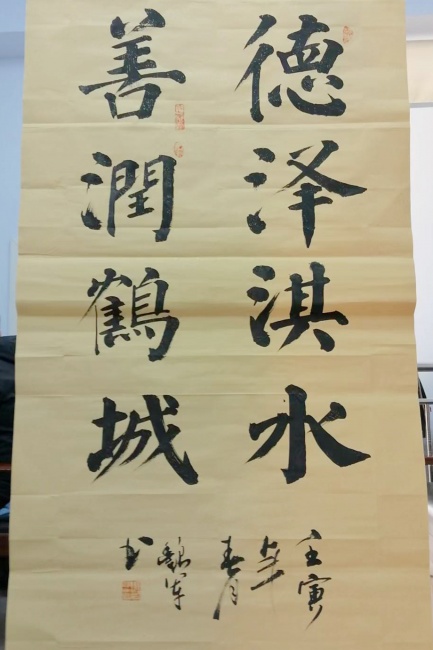 德泽淇水
善潤鶴城
壬寅
年
春月
魏军
书